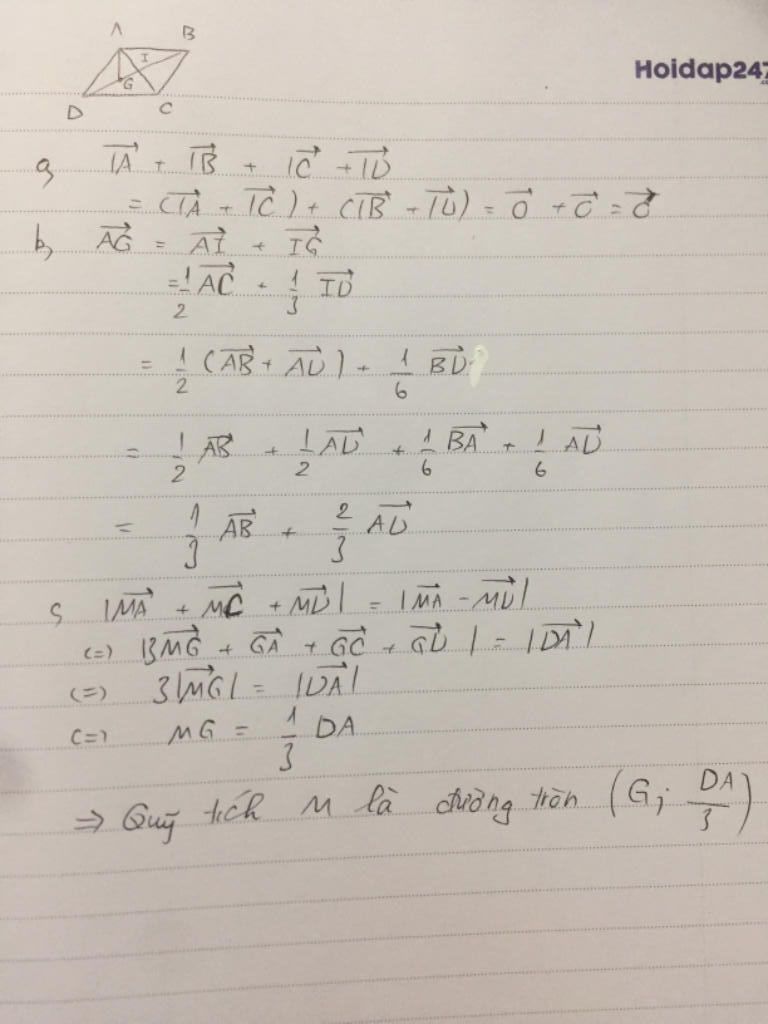 A B
I
G
D C
Hoidap247
a, $\overrightarrow{IA} + \overrightarrow{IB} + \overrightarrow{IC} + \overrightarrow{ID}$
$= (\overrightarrow{IA} + \overrightarrow{IC}) + (\overrightarrow{IB} + \overrightarrow{ID}) = \overrightarrow{0} + \overrightarrow{0} = \overrightarrow{0}$
b, $\overrightarrow{AG} = \overrightarrow{AI} + \overrightarrow{IG}$
$= \frac{1}{2} \overrightarrow{AC} + \frac{1}{3} \overrightarrow{ID}$
$= \frac{1}{2} (\overrightarrow{AB} + \overrightarrow{AD}) + \frac{1}{6} \overrightarrow{BD}$
$= \frac{1}{2} \overrightarrow{AB} + \frac{1}{2} \overrightarrow{AD} + \frac{1}{6} \overrightarrow{BA} + \frac{1}{6} \overrightarrow{AD}$
$= \frac{1}{3} \overrightarrow{AB} + \frac{2}{3} \overrightarrow{AD}$
c, $|\overrightarrow{MA} + \overrightarrow{MC} + \overrightarrow{MD}| = |\overrightarrow{MA} - \overrightarrow{MD}|$
(=) $|3\overrightarrow{MG} + \overrightarrow{GA} + \overrightarrow{GC} + \overrightarrow{GD}| = |\overrightarrow{DA}|$
(=) $3|\overrightarrow{MG}| = |\overrightarrow{DA}|$
(=) $MG = \frac{1}{3} DA$
⇒ Quỹ tích M là đường tròn $(G; \frac{DA}{3})$